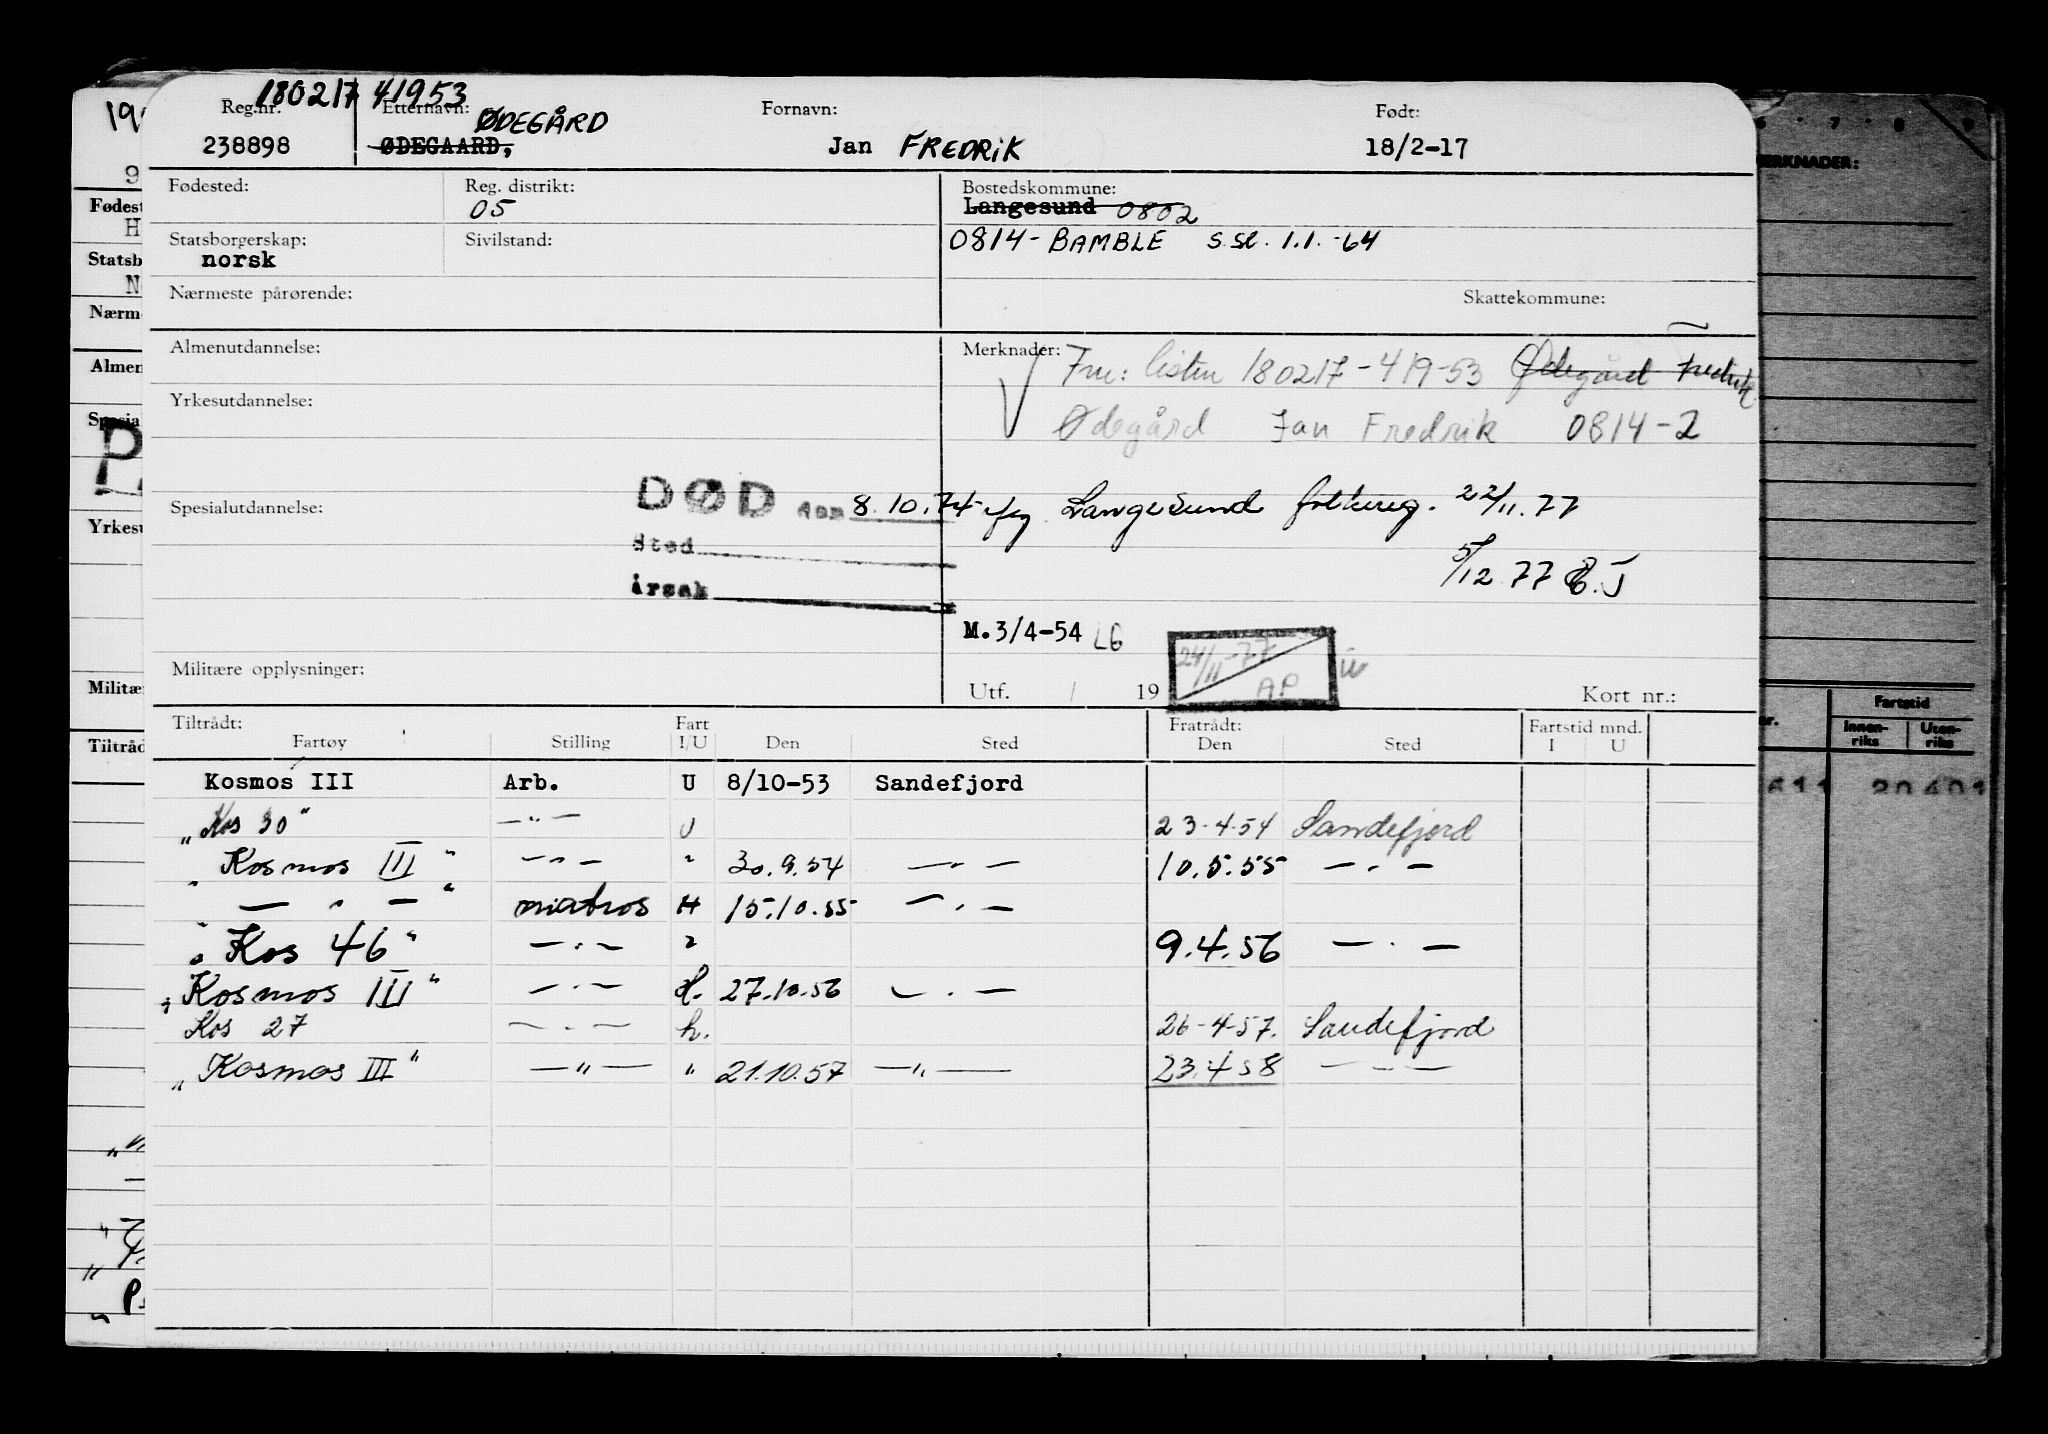 180217 41953
Reg.nr. Etternavn: Fornavn: Født:
ØDEGÅRD
238898 ØDEGAARD, Jan FREDRIK 18/2-17
Fødested: Reg. distrikt: Bostedskommune:
05 Langesund 0802
Statsborgerskap: Sivilstand: 0814- BAMBLE s.sl. 1.1.-64
norsk
Nærmeste pårørende: Skattekommune:
Almenutdannelse: Merknader: Fnr: listen 180217-419-53 Ødegård Fredrik
Yrkesutdannelse: Ødegård Jan Fredrik 0814-2
Spesialutdannelse: DØD den 8.10.74 flg Langesund folkereg. 22/11.77
Sted
årsak 5/12 77
M.3/4-54 LG
24/11-77
AP
Militære opplysninger: Utf. / 19 Kort nr.:
Tiltrådt: Fart Fratrådt: Fartstid mnd.
Fartøy Stilling I/U Den Sted Den Sted I U
Kosmos III Arb. U 8/10-53 Sandefjord
"Kos 30" —"— U 23.4.54 Sandefjord
"Kosmos III" —"— " 30.9.54 —"— 10.5.55 —"—
" — " — " matros H 15.10.55 —"—
"Kos 46" —"— " 9.4.56 —"—
"Kosmos III" —"— H. 27.10.56 —"—
Kos 27 —"— h. 26-4-57. Sandefjord
"Kosmos III" —"— " 21.10.57 —"— 23.4 58 —"—
MERKNADER:
Fartstid
Innen-riks Uten-riks